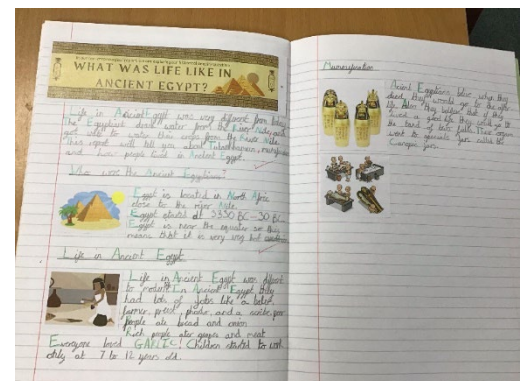 WHAT WAS LIFE LIKE IN
ANCIENT EGYPT?
Life in Ancient Egypt was very different from today.
The Egyptians drank water from the River Nile,
to water their crops from the River Nile.
This report will tell you about Tutankhamun,
and how people lived in Ancient Egypt.
Who were the Ancient Egyptians?
Egypt is located in North Africa
close to the river Nile.
Egypt started at 3330 BC-30 BC
Egypt is near the equator so this
means that it is very
Life in Ancient Egypt
Life in Ancient Egypt was different
to modern. In Ancient Egypt they
had lots of jobs like a baker,
farmer, priest, and a scribe. poor
People ate bread and onion
Rich people ate grapes and meat
Everyone loved GARLIC! Children started to work
at 7 to 12 years old.
Mummification
Ancient Egyptians when they
died they would go to the after
life. Also they that if they
lived a good life they could go to
the of Their organs
went to jars called the
Canopic jars.